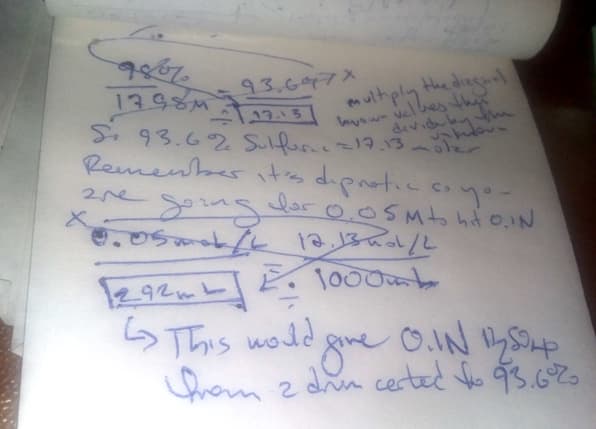 98% = 93.6%
17.98M ÷ 17.13
multiply the diagonal
known values then
divide by the
unknown
So 93.6% Sulfuric = 17.13 molar
Remember it's diprotic so you
are going for 0.05M to hit 0.1N
x
0.05mol/L 17.13mol/L
2.92mL = ÷ 1000mL
↳ This would give 0.1N H2SO4
from a drum certed to 93.6%